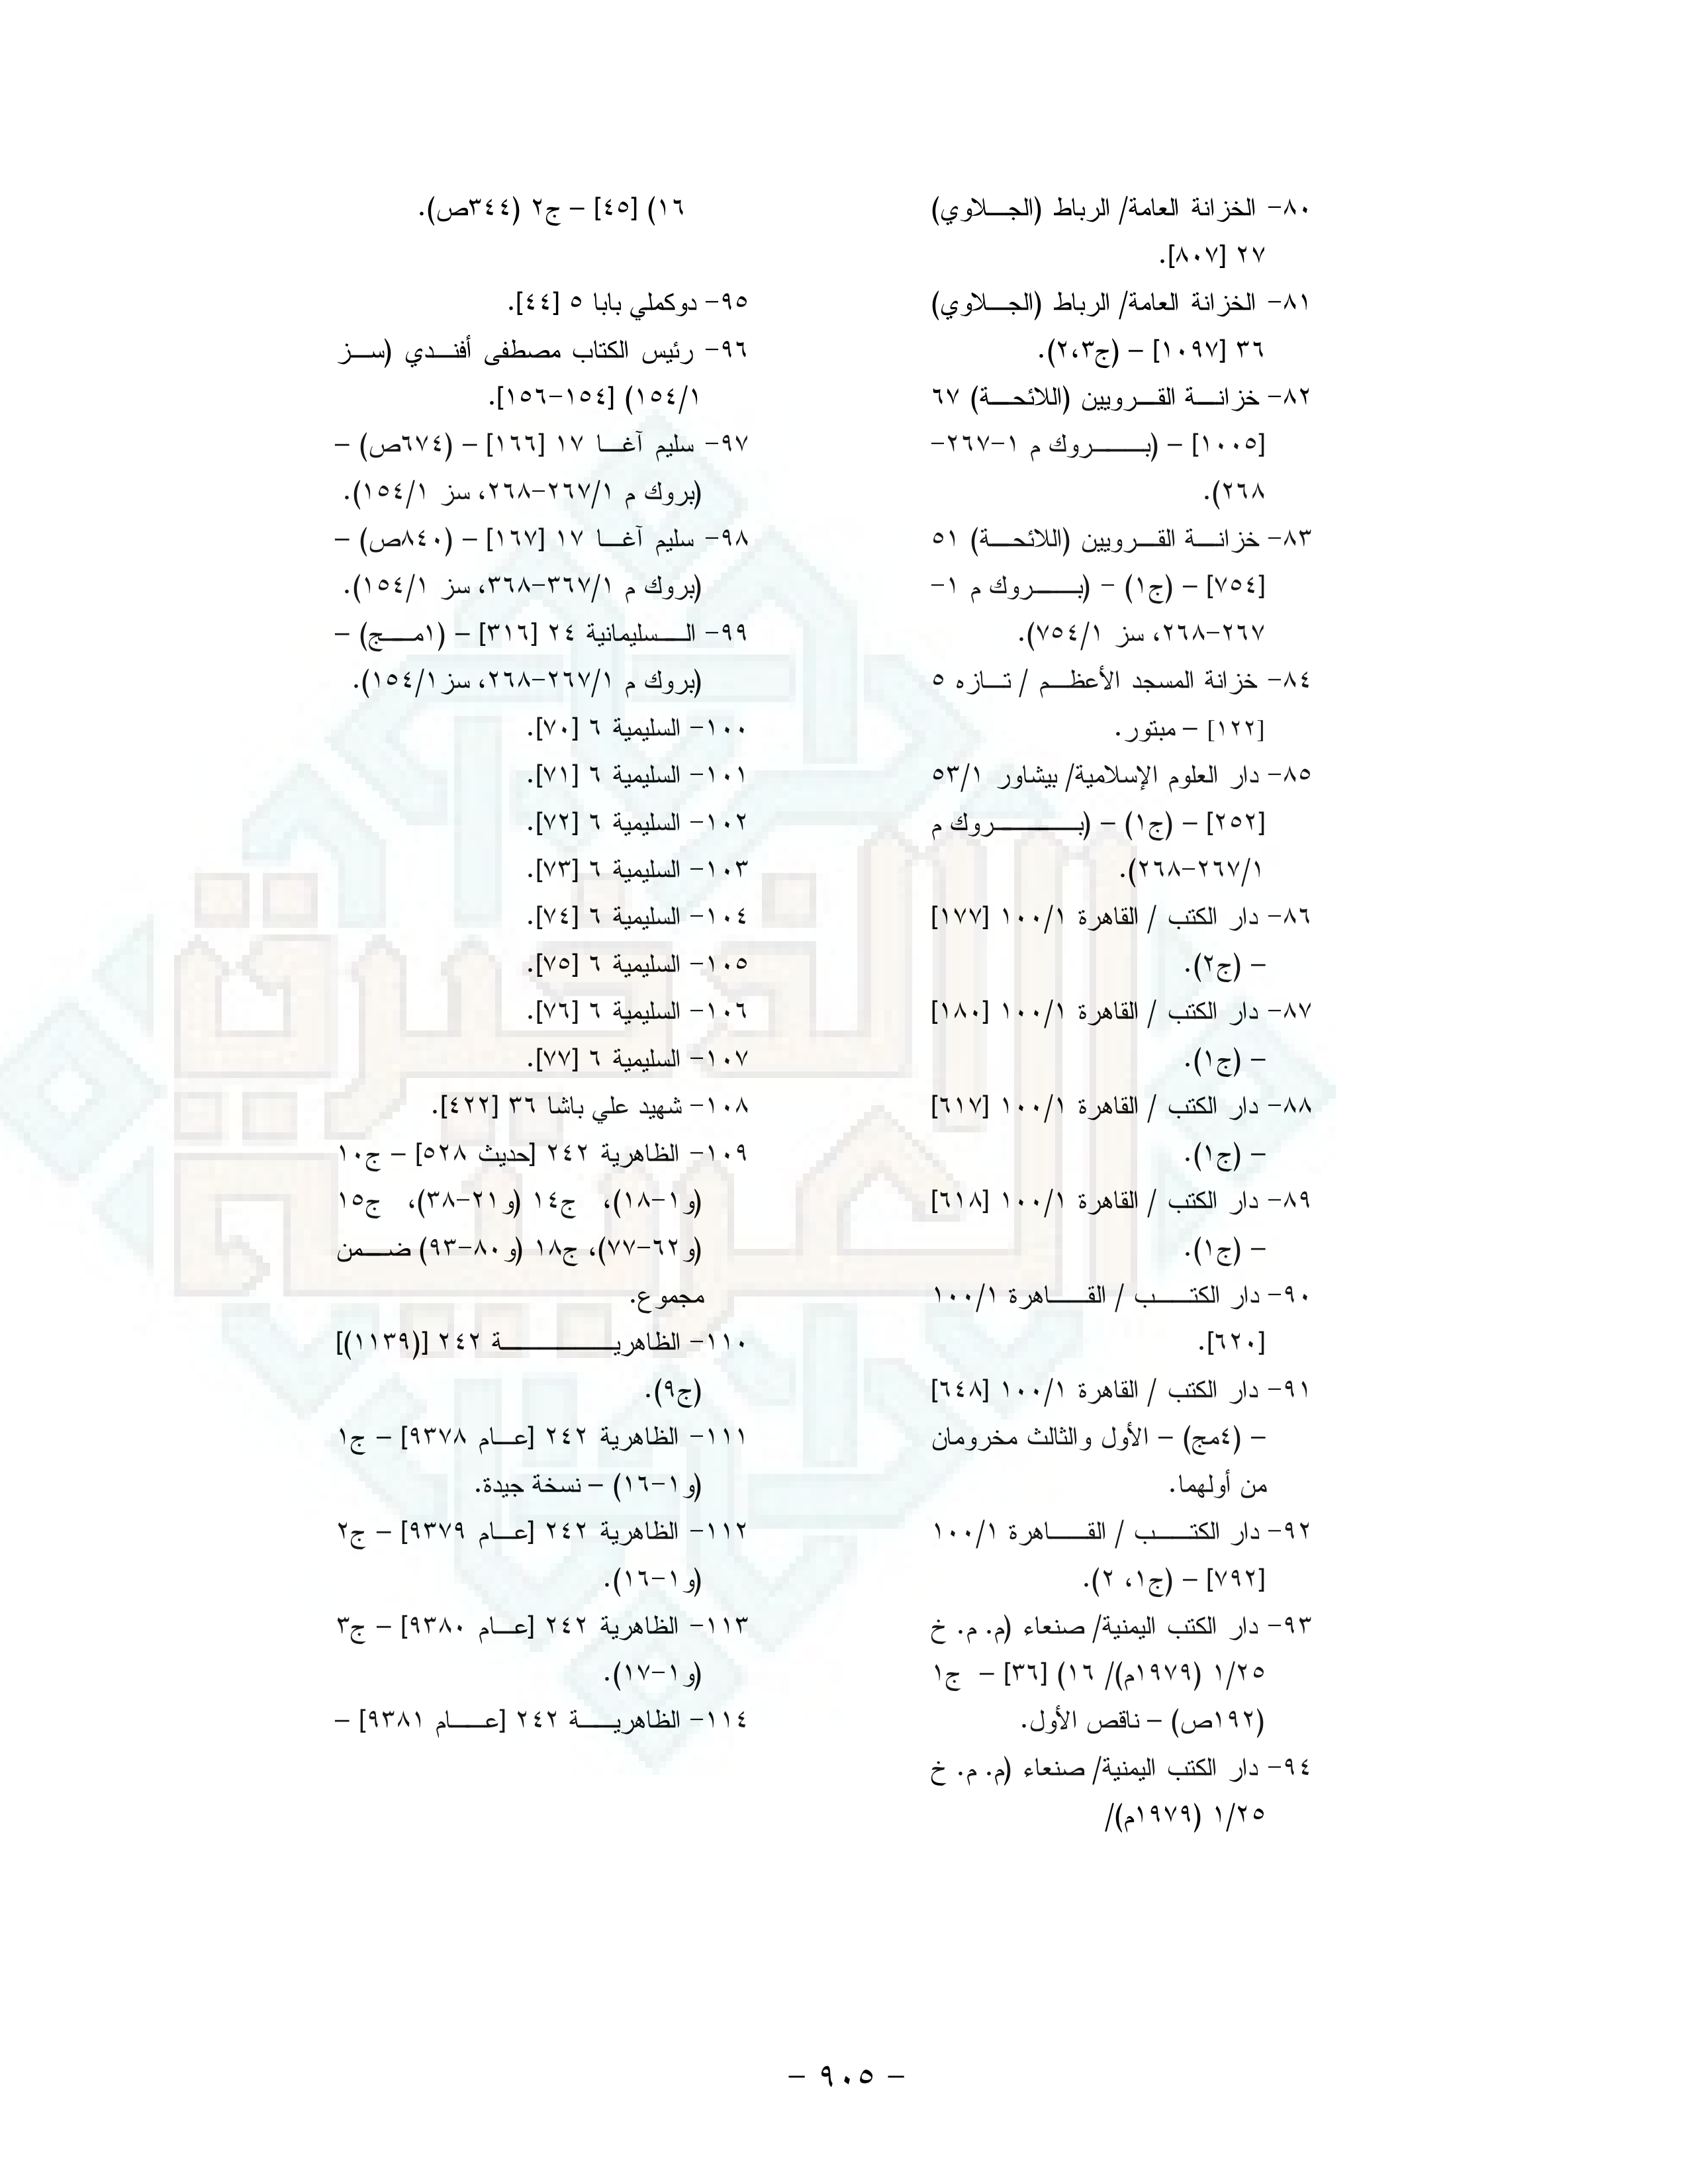 ٨٠- الخزانة العامة/ الرباط (الجلاوي)
٢٧ [٨٠٧].
٨١- الخزانة العامة/ الرباط (الجلاوي)
٣٦ [١٠٩٧] – (ج٢،٣).
٨٢- خزانة القرويين (اللائحة) ٦٧
[١٠٠٥] – (بروك م ١-٢٦٧-
٢٦٨).
٨٣- خزانة القرويين (اللائحة) ٥١
[٧٥٤] – (ج١) – (بروك م ١-
٢٦٧-٢٦٨، سز ٧٥٤/١).
٨٤- خزانة المسجد الأعظم / تازه ٥
[١٢٢] – مبتور.
٨٥- دار العلوم الإسلامية/ بيشاور ٥٣/١
[٢٥٢] – (ج١) – (بروك م
٢٦٧/١-٢٦٨).
٨٦- دار الكتب / القاهرة ١٠٠/١ [١٧٧]
– (ج٢).
٨٧- دار الكتب / القاهرة ١٠٠/١ [١٨٠]
– (ج١).
٨٨- دار الكتب / القاهرة ١٠٠/١ [٦١٧]
– (ج١).
٨٩- دار الكتب / القاهرة ١٠٠/١ [٦١٨]
– (ج١).
٩٠- دار الكتب / القاهرة ١٠٠/١
[٦٢٠].
٩١- دار الكتب / القاهرة ١٠٠/١ [٦٤٨]
– (٤مج) – الأول والثالث مخرومان
من أولهما.
٩٢- دار الكتب / القاهرة ١٠٠/١
[٧٩٢] – (ج١، ٢).
٩٣- دار الكتب اليمنية/ صنعاء (م. م. خ
١/٢٥ (١٩٧٩م)/ ١٦) [٣٦] – ج١
(١٩٢ص) – ناقص الأول.
٩٤- دار الكتب اليمنية/ صنعاء (م. م. خ
١/٢٥ (١٩٧٩م)/
١٦) [٤٥] – ج٢ (٣٤٤ص).
٩٥- دوكملي بابا ٥ [٤٤].
٩٦- رئيس الكتاب مصطفى أفندي (سز
١٥٤/١) [١٥٤-١٥٦].
٩٧- سليم آغا ١٧ [١٦٦] – (٦٧٤ص) –
(بروك م ٢٦٧/١-٢٦٨، سز ١٥٤/١).
٩٨- سليم آغا ١٧ [١٦٧] – (٨٤٠ص) –
(بروك م ٣٦٧/١-٣٦٨، سز ١٥٤/١).
٩٩- السليمانية ٢٤ [٣١٦] – (١مج) –
(بروك م ٢٦٧/١-٢٦٨، سز١٥٤/١).
١٠٠- السليمية ٦ [٧٠].
١٠١- السليمية ٦ [٧١].
١٠٢- السليمية ٦ [٧٢].
١٠٣- السليمية ٦ [٧٣].
١٠٤- السليمية ٦ [٧٤].
١٠٥- السليمية ٦ [٧٥].
١٠٦- السليمية ٦ [٧٦].
١٠٧- السليمية ٦ [٧٧].
١٠٨- شهيد علي باشا ٣٦ [٤٢٢].
١٠٩- الظاهرية ٢٤٢ [حديث ٥٢٨] – ج١٠
(و١-١٨)، ج١٤ (و٢١-٣٨)، ج١٥
(و٦٢-٧٧)، ج١٨ (و٨٠-٩٣) ضمن
مجموع.
١١٠- الظاهرية ٢٤٢ [(١١٣٩)]
(ج٩).
١١١- الظاهرية ٢٤٢ [عام ٩٣٧٨] – ج١
(و١-١٦) – نسخة جيدة.
١١٢- الظاهرية ٢٤٢ [عام ٩٣٧٩] – ج٢
(و١-١٦).
١١٣- الظاهرية ٢٤٢ [عام ٩٣٨٠] – ج٣
(و١-١٧).
١١٤- الظاهرية ٢٤٢ [عام ٩٣٨١] –
– ٩٠٥ –
الذخيرة
العربية